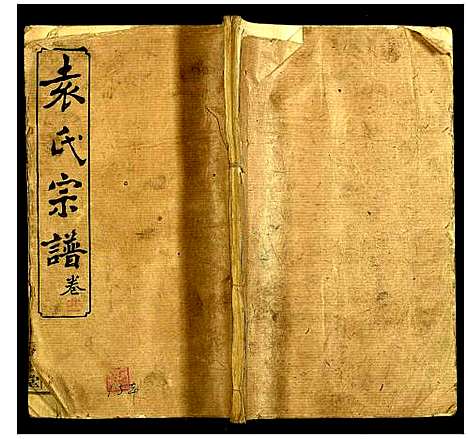 袁氏宗譜
卷